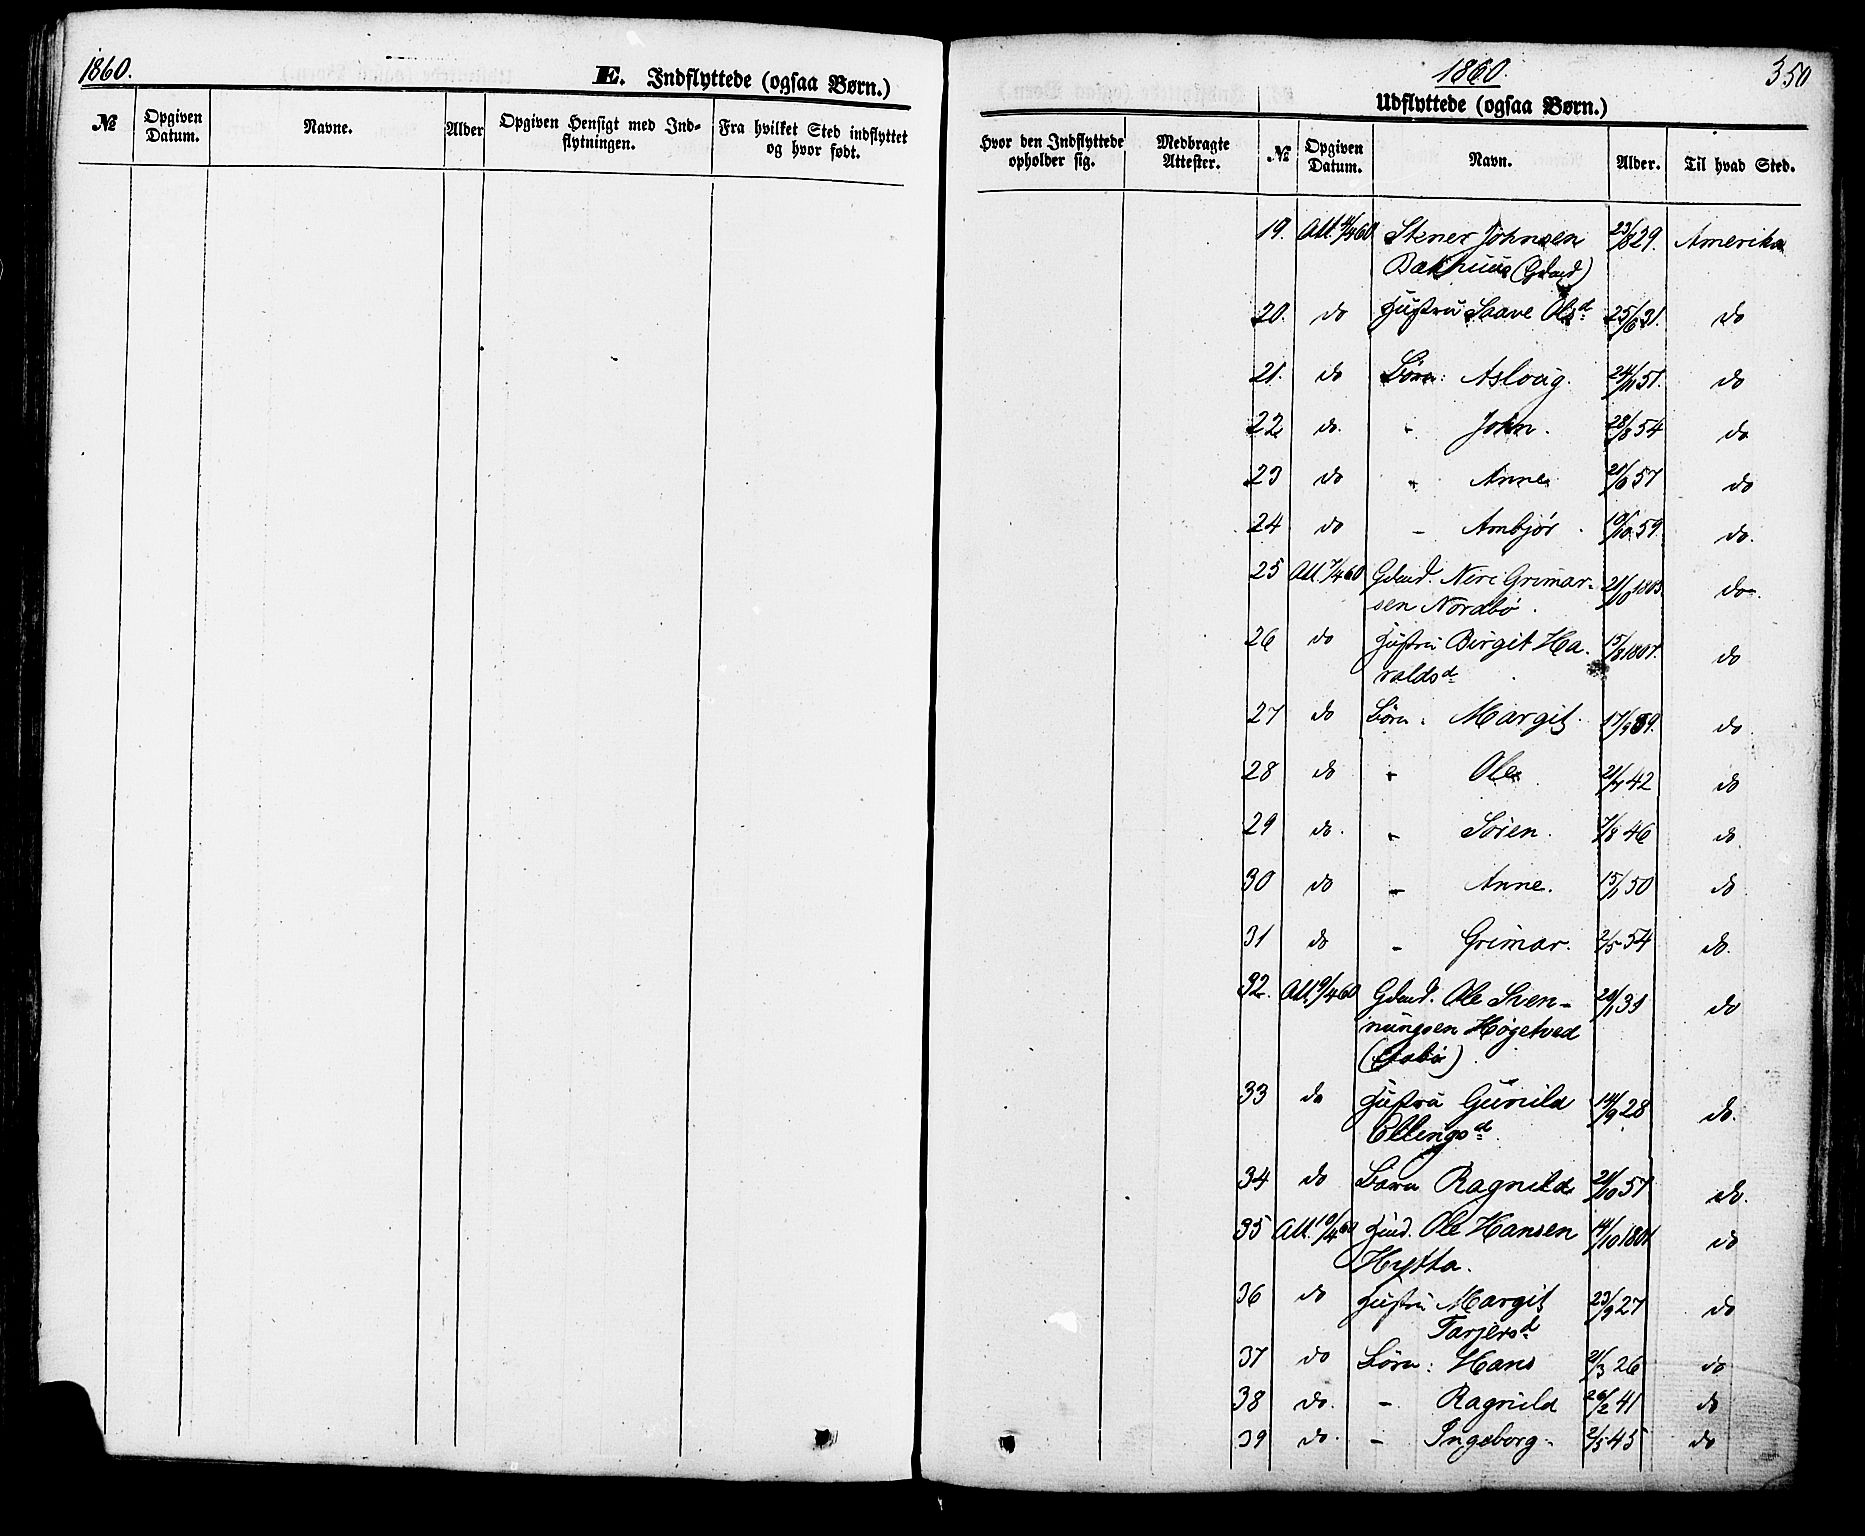 1860.
E. Indflyttede (ogsaa Børn.)
№ Opgiven Datum. Navne. Alder Opgiven Hensigt med Indflytningen. Fra hvilket Sted indflyttet og hvor født.
1860. 350
Udflyttede (ogsaa Børn.)
Hvor den Indflyttede opholder sig. Medbragte Attester. № Opgiven Datum. Navn. Alder. Til hvad Sted.
19. Att. 4/4 60 Stener Johnsen 29. Amerika
Bakhuus (Gdmd)
20. do Hustru Saave Olsd 25/6 31. do
21. do Børn: Asloug. 24/11 51. do
22 do. " John. 28/8 54 do
23 do " Anne 21/6 57 do
24 do " Ambjør. 19/10 59. do.
25 Att. 7/4 60 Gdmd. Neri Grimar- 1803 do.
sen Nordbö.
26 do Hustru Birgit Ha- 15/8 1807. do
raldsd
27 do Börn: Margit. 17/9 39. do.
28 do " Ole 42 do
29 do. " Sören. 7/8 46 do
30 do " Anne. 15/1 50 do
31 do " Grimar. 2/5 54 do.
32. Att. 9/4 60 Gdmd. Ole Sven- do
nungsen Høgetved
33 do Hustru Gunild 14/9 28 do.
Ellingsd.
34 do Barn Ragnild 21/10 57 do.
35 Att. 10/4 60 Huusmd. Ole Hansen 14/10 1801 do
Hytta.
36 do Hustru Margit 23/9 27 do
Tarjersd
37 do Börn: Hans 21/3 26 do
38 do. " Ragnild 26/2 41 do
39 do. " Ingeborg. 2/5 45 do